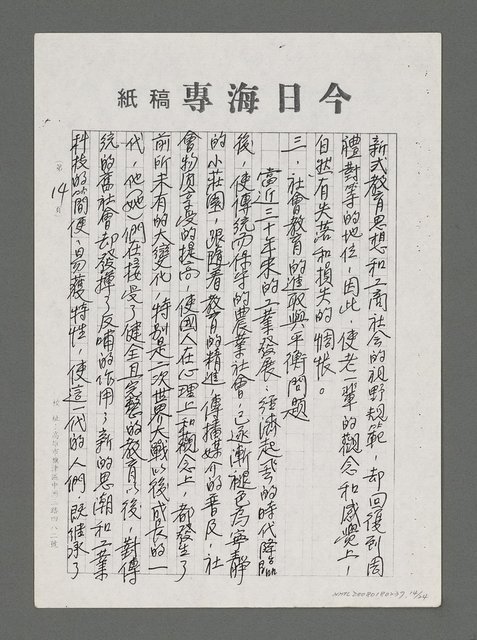 今日海專稿紙
新式教育思想和工商社會的視野規範，却回復到周
體對等的地位，因此，使老一輩的觀念和感覺上，
自然有失落和損失的惆悵。
三，社會教育的進取與平衡問題
當近三十年來的工業發展，經濟起飛的時代降臨
後，使傳統而保守的農業社會，已逐漸褪色為寧靜
的小莊園，跟隨着教育的精進，傳播媒介的普及，社
會物質享受的提高，使國人在心理上和觀念上，都發生了
前所未有的大變化，特別是二次世界大戰以後成長的一
代，他（她）們在接受了健全且完整的教育以後，對傳
統的舊社會却發揮了反哺的作用，新的思潮和工業
科技的簡便、易獲特性，使這一代的人們既繼承了
第14頁
校址：高雄市旗津區中洲三路四八二號
NMTL20080180237 14/24